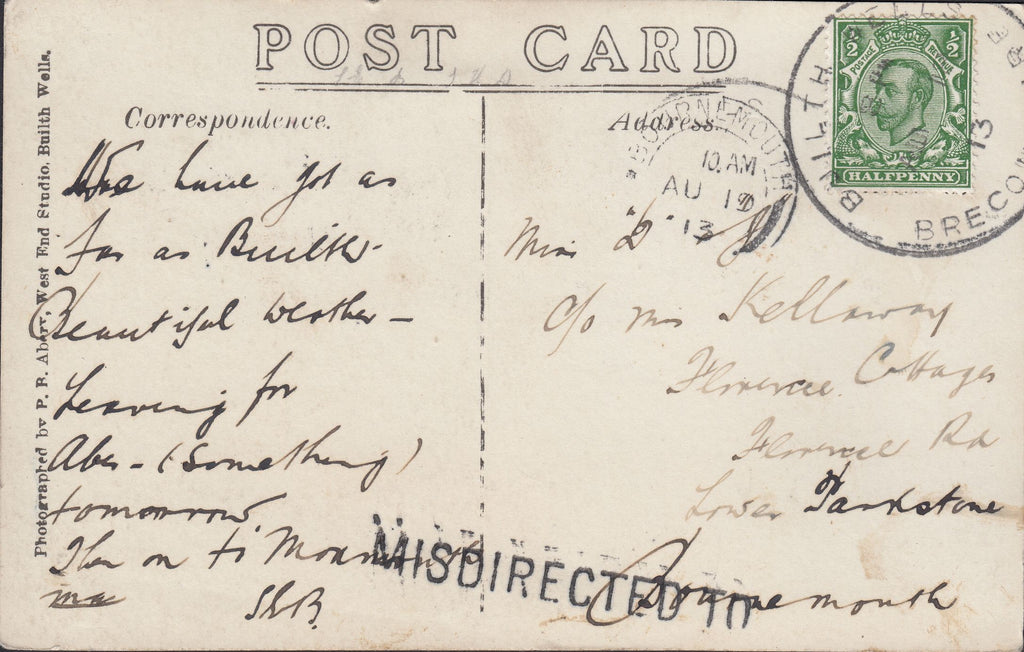 POST CARD
Photographed by P. B. Abery, West End Studio, Builth Wells.
Correspondence.
We have got as
far as Builth
Beautiful weather -
Leaving for
Aber - (Something)
tomorrow
Then on to
S&B.
Address.
Miss "D"
c/o Mrs Kellaway
Florence Cottages
Florence Rd
Lower Parkstone
Bournemouth
MISDIRECTED TO
BOURNEMOUTH
10. AM
AU 19
13
BUILTH WELLS
13
BRECON
1/2 1/2
POSTAGE REVENUE
HALFPENNY